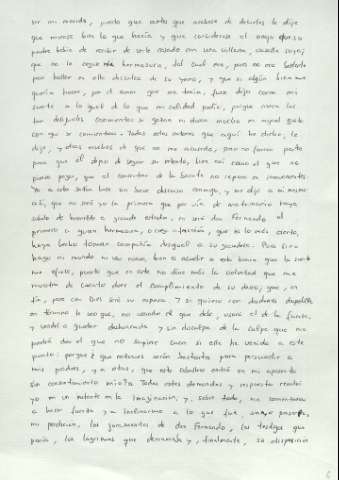 ser mi marido, puesto que antes que acabase de decirlas le dije
que mirase bien lo que hacía y que considerase el enojo que su
padre había de recibir de verle casado con una villana, vasalla suya;
que no le cegase mi hermosura, tal cual era, pues no era bastante
para hallar en ella disculpa de su yerro, y que si algún bien me
quería hacer, por el amor que me tenía, fuese dejar correr mi
suerte a lo igual de lo que mi calidad podía, porque nunca los
tan desiguales casamientos se gozan ni duran mucho en aquel gusto
con que se comienzan. Todas estas razones que aquí he dicho, le
dije, y otras muchas de que no me acuerdo, pero no fueron parte
para que él dejase de seguir su intento, bien así como el que no
piensa pagar, que al concertar de la barata no repara en inconvenientes.
Yo a esta sazón hice un breve discurso conmigo, y me dije a mí misma:
sí, que no seré yo la primera que por vía de matrimonio haya
subido de humilde a grande estado, ni será don Fernando el
primero a quien hermosura, o ciega afición, que es lo más cierto,
haya hecho tomar compañía desigual a su grandeza. Pues si no
hago ni mundo ni uso nuevo, bien es acudir a esta honra que la suerte
me ofrece, puesto que en este no dure más la voluntad que me
muestra de cuanto dure el cumplimiento de su deseo; que, en
fin, para con Dios seré su esposa. Y si quiero con desdenes despedille,
en término le veo que, no usando el que debe, usará el de la fuerza,
y vendré a quedar deshonrada y sin disculpa de la culpa que me
podrá dar el que no supiere cuan sin ella he venido a este
punto: porque ¿qué razones serán bastantes para persuadir a
mis padres, y a otros, que este caballero entró en mi aposento
sin consentimiento mío? Todas estas demandas y respuestas revolví
yo en un instante en la imaginación; y, sobre todo, me comenzaron
a hacer fuerza y a inclinarme a lo que fue, sin yo pensarlo,
mi perdición, los juramentos de don Fernando, los testigos que
ponía, las lágrimas que derramaba y, finalmente, su disposición
6